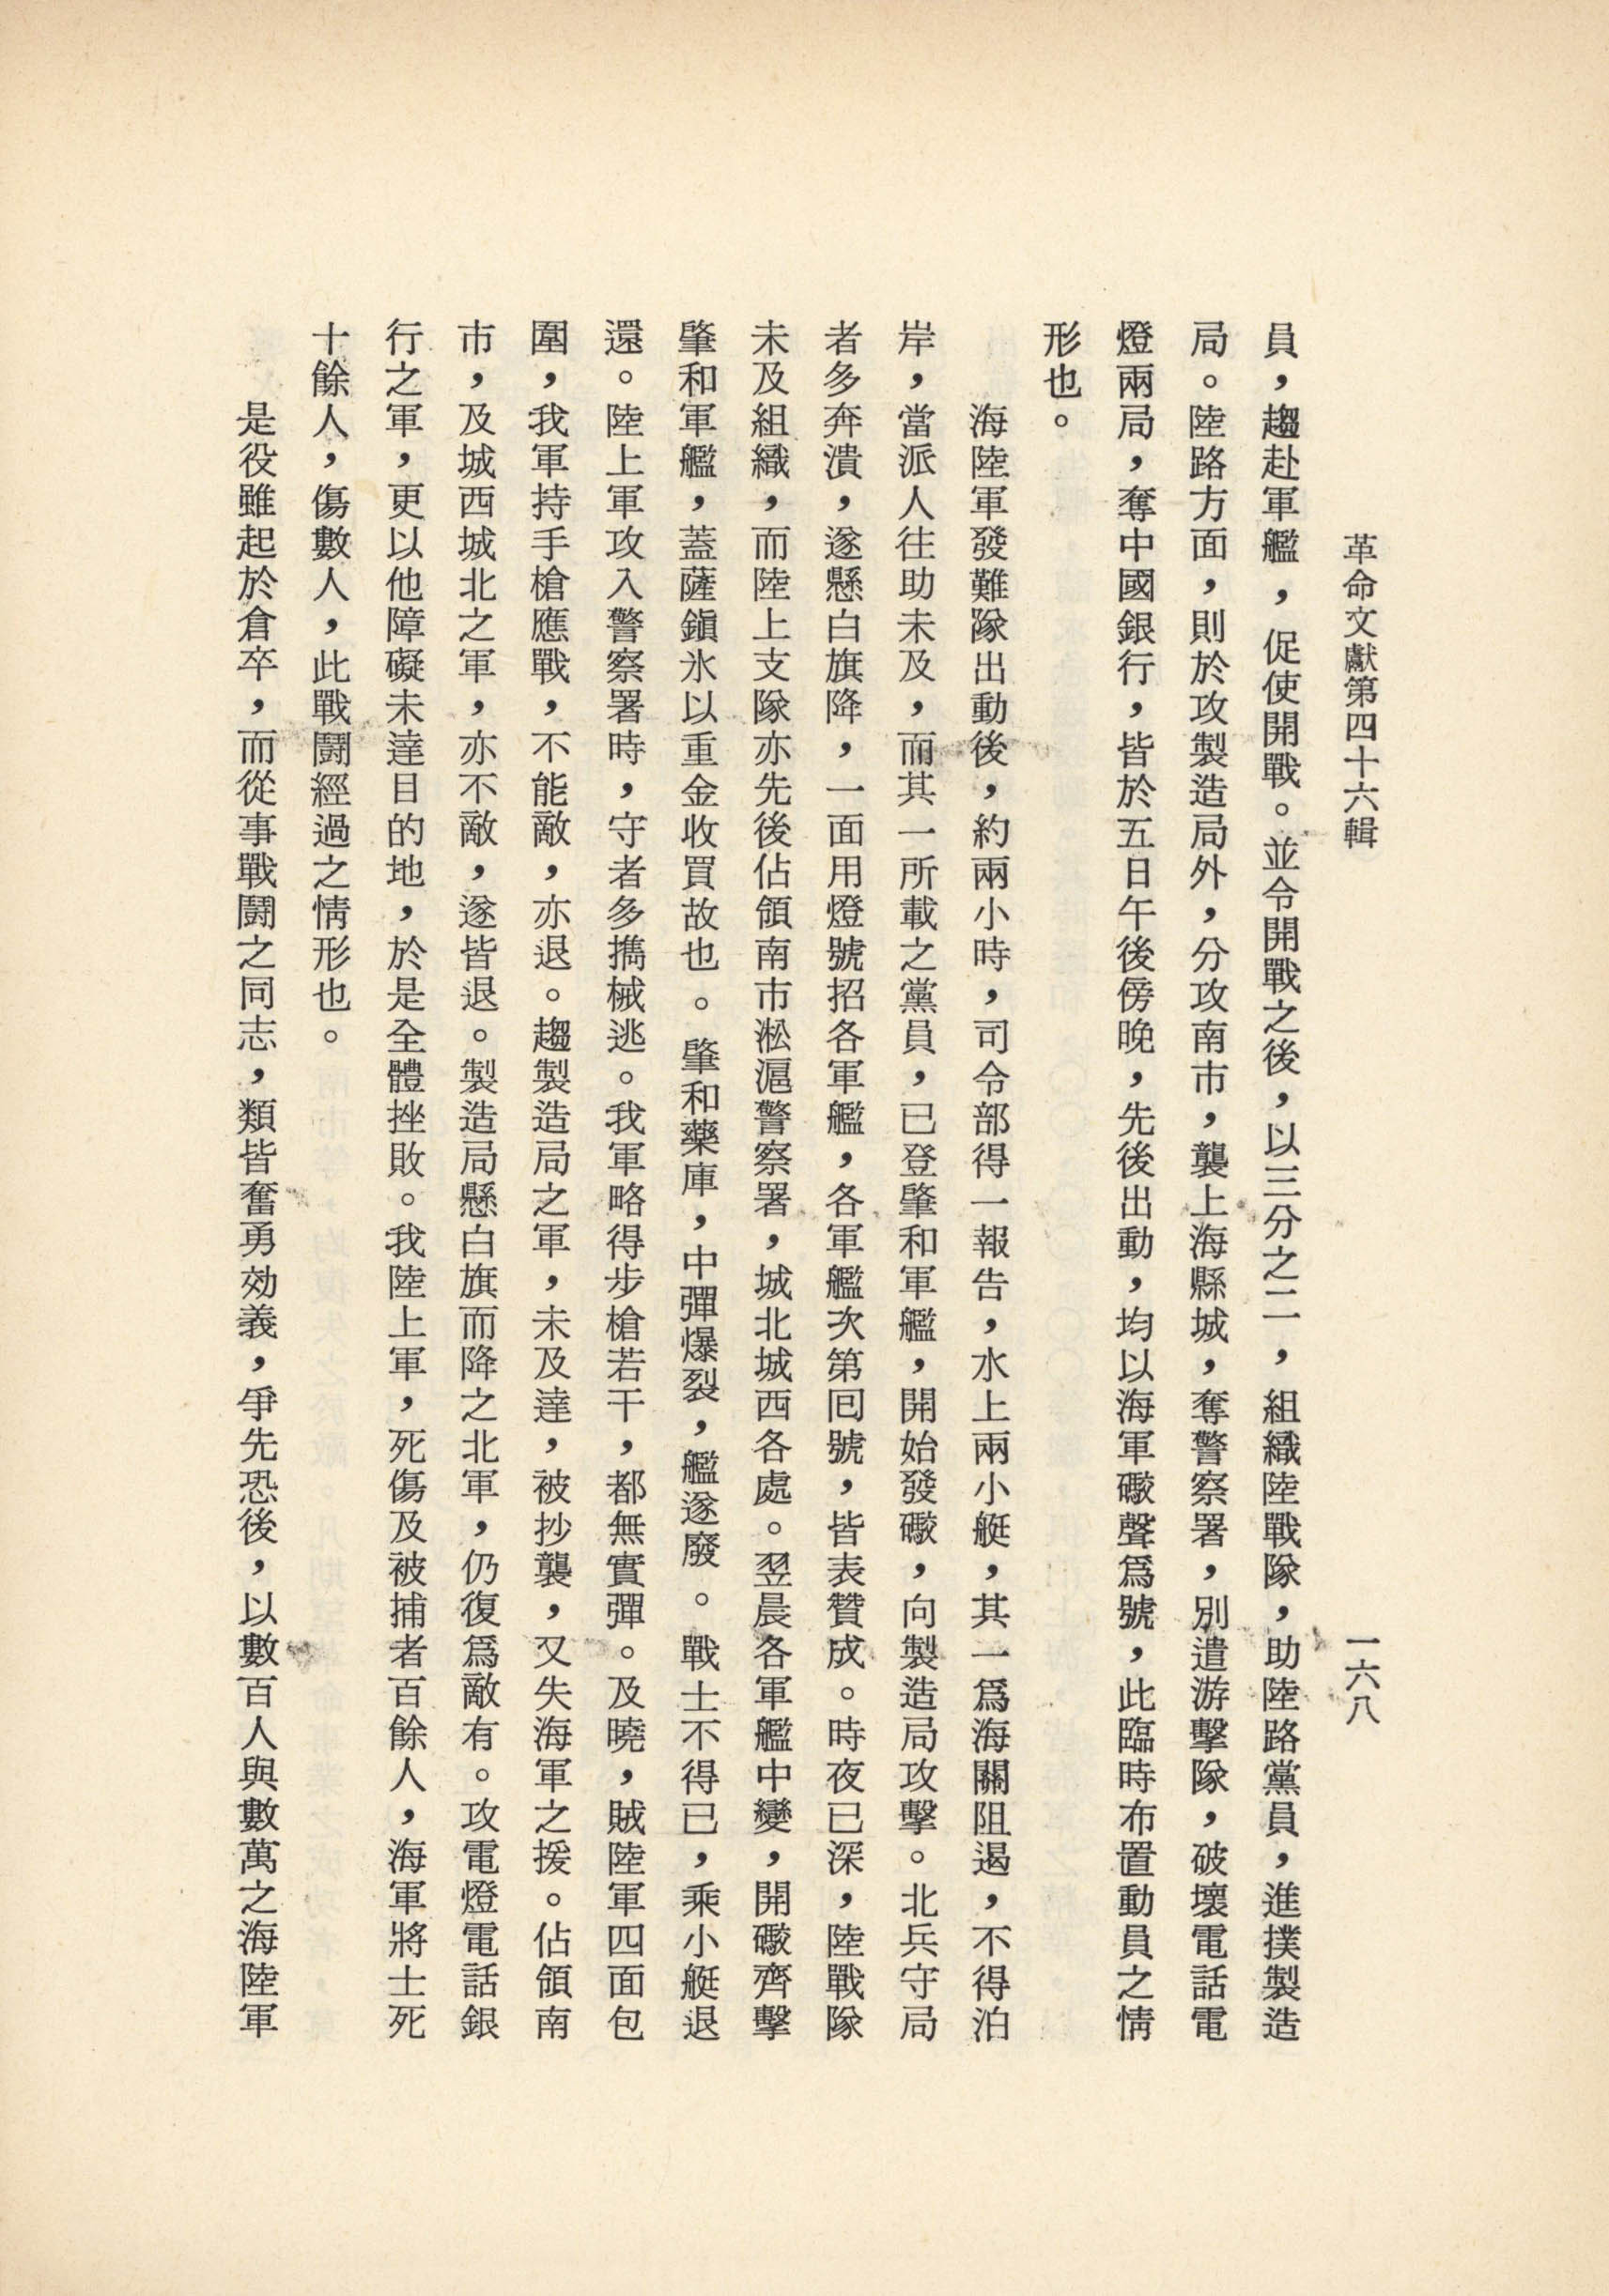 革命文獻第四十六輯
一六八
員，趨赴軍艦，促使開戰。並令開戰之後，以三分之二，組織陸戰隊，助陸路黨員，進撲製造
局。陸路方面，則於攻製造局外，分攻南市，襲上海縣城，奪警察署，別遣游擊隊，破壞電話電
燈兩局，奪中國銀行，皆於五日午後傍晚，先後出動，均以海軍礮聲爲號，此臨時布置動員之情
形也。
海陸軍發難隊出動後，約兩小時，司令部得一報告，水上兩小艇，其一爲海關阻遏，不得泊
岸，當派人往助未及，而其一所載之黨員，已登肇和軍艦，開始發礮，向製造局攻擊。北兵守局
者多奔潰，遂懸白旗降，一面用燈號招各軍艦，各軍艦次第回號，皆表贊成。時夜已深，陸戰隊
未及組織，而陸上支隊亦先後佔領南市淞滬警察署，城北城西各處。翌晨各軍艦中變，開礮齊擊
肇和軍艦，蓋薩鎭氷以重金收買故也。肇和藥庫，中彈爆裂，艦遂廢。戰士不得已，乘小艇退
還。陸上軍攻入警察署時，守者多攜械逃。我軍略得步槍若干，都無實彈。及曉，賊陸軍四面包
圍，我軍持手槍應戰，不能敵，亦退。趨製造局之軍，未及達，被抄襲，又失海軍之援。佔領南
市，及城西城北之軍，亦不敵，遂皆退。製造局懸白旗而降之北軍，仍復爲敵有。攻電燈電話銀
行之軍，更以他障礙未達目的地，於是全體挫敗。我陸上軍，死傷及被捕者百餘人，海軍將士死
十餘人，傷數人，此戰鬪經過之情形也。
是役雖起於倉卒，而從事戰鬪之同志，類皆奮勇効義，爭先恐後，以數百人與數萬之海陸軍